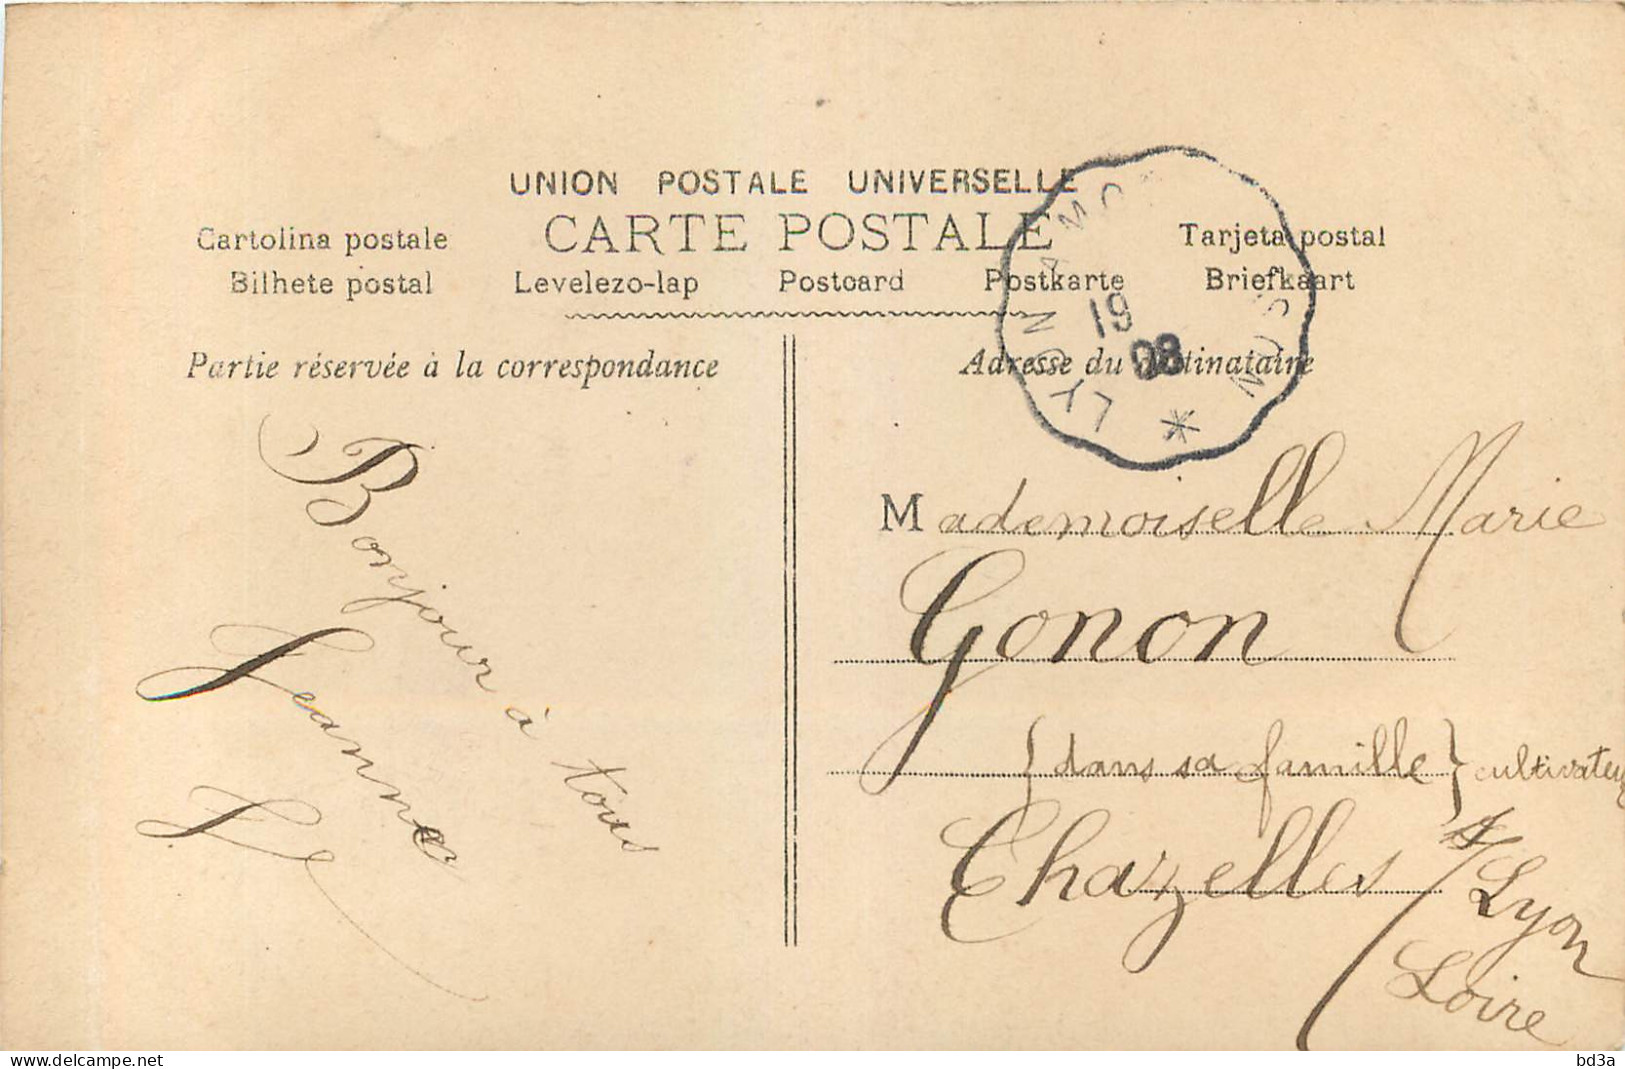 UNION POSTALE UNIVERSELLE
CARTE POSTALE
Cartolina postale
Tarjeta postal
Bilhete postal
Levelezo-lap
Postcard
Postkarte
Briefkaart
LYON A MO
19
08
Partie réservée à la correspondance
Adresse du destinataire
Bonjour à tous
Jeanne
Mademoiselle Marie
Gonon
{dans sa famille} cultivateur
Chazelles s/Lyon
Loire
www.delcampe.net
bd3a